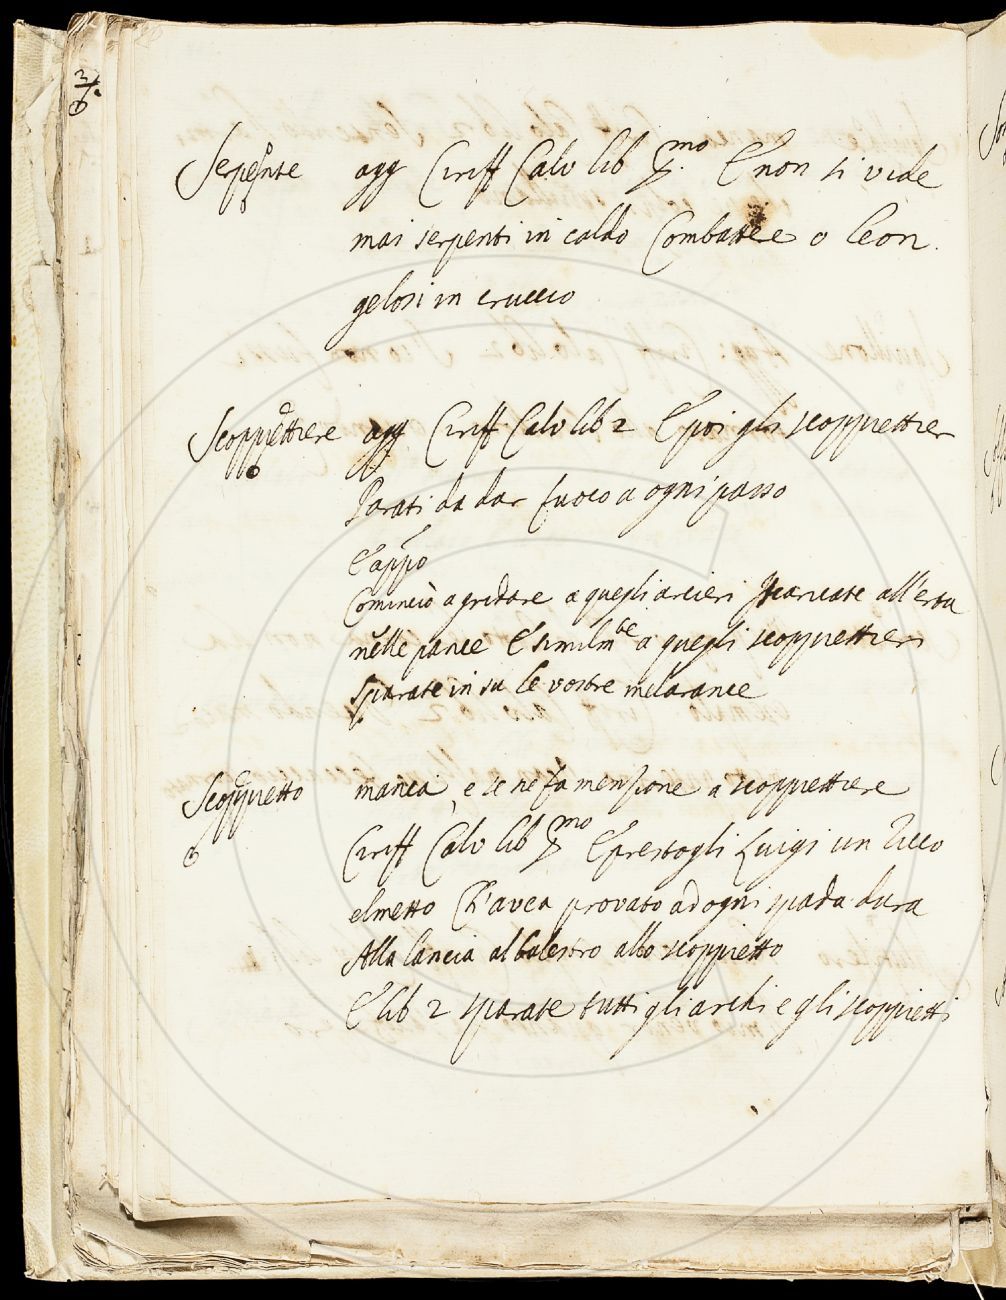 Serpente agg Ciriff Calv lib p.mo E non si vide
mai serpenti in caldo Combattere o leon
gelosi in cruccio
Scoppiettiere agg Ciriff Calv lib 2 E poi gli scoppiettier
Parati da dar fuoco a ogni passo
E appo
Cominciò a gridare a quegli arcieri Scaricate all'erta
nelle pance E similmte a quegli scoppiettieri
sparate in su le vostre melarance
Scoppietto manca, e se ne fa menzione a scoppiettiere
Ciriff Calv lib pmo E prestogli Luigi un ricco
elmetto Ch'avea provato ad ogni spada dura
Alla lancia al balestro allo scoppietto
E lib 2 sparate tutti gli archi e gli scoppietti